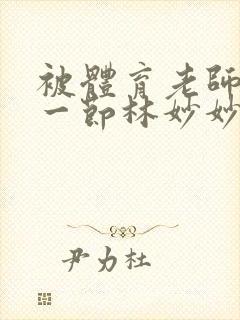 被體育老師
一節林妙妙
尹力杜